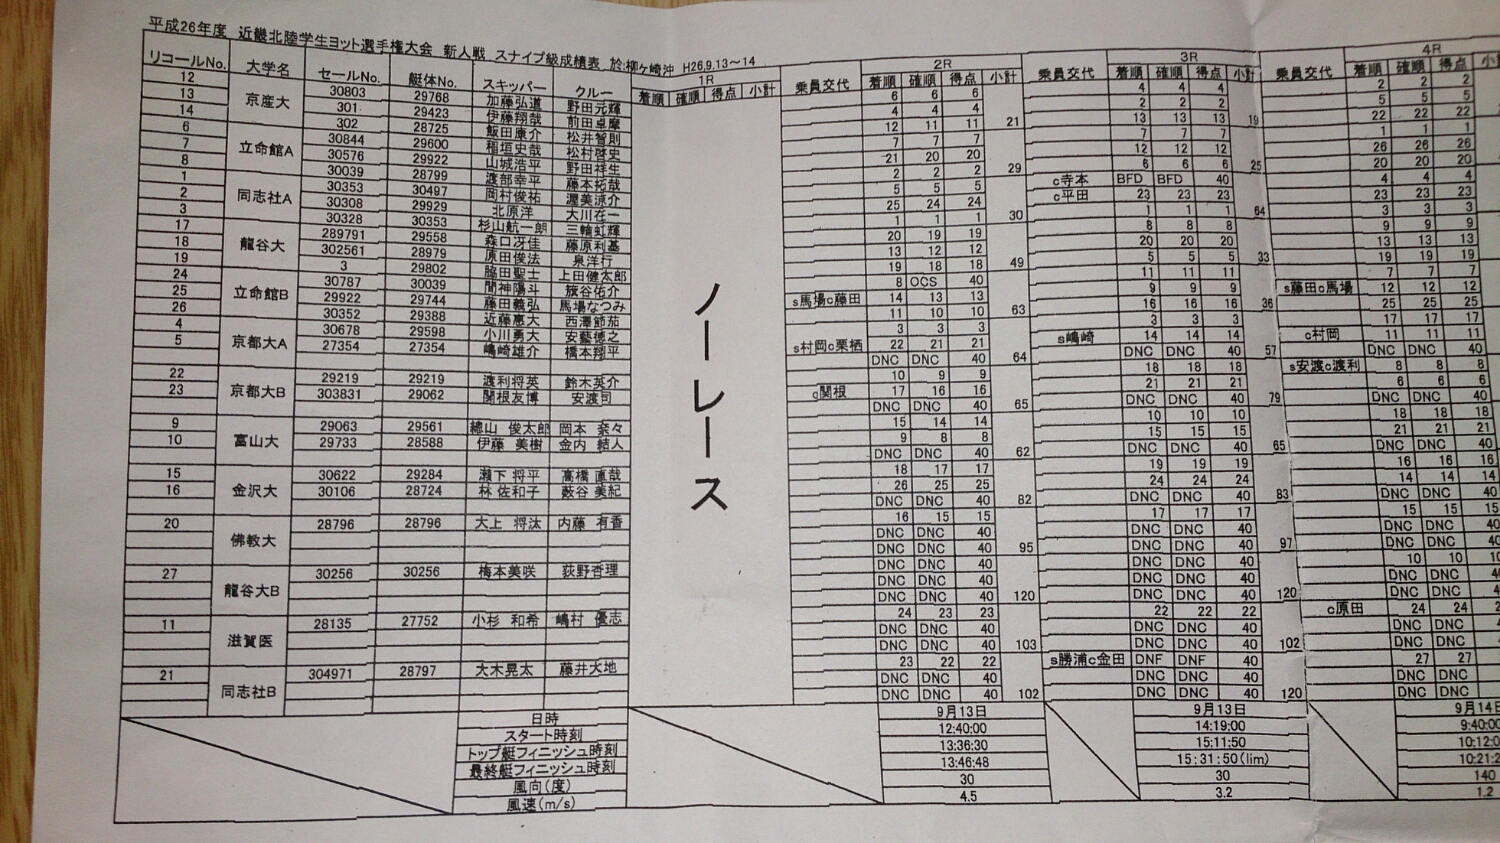 平成26年度 近畿北陸学生ヨット選手権大会 新人戦 スナイプ級成績表 於:柳ヶ崎沖 H26.9.13～14
リコールNo. 大学名 セールNo. 艇体No. スキッパー クルー 1R 着順 確順 得点 小計 乗員交代 2R 着順 確順 得点 小計 乗員交代 3R 着順 確順 得点 小計 乗員交代 4R 着順 確順 得点
ノーレース
12 京産大 30803 29768 加藤弘道 野田元輝 6 6 6 4 4 4 2 2 2
13 301 29423 伊藤翔哉 前田卓摩 4 4 4 2 2 2 5 5 5
14 302 28725 飯田康介 松井智則 12 11 11 21 13 13 13 19 22 22 22
6 立命館A 30844 29600 稲垣史哉 松村啓史 7 7 7 7 7 7 1 1 1
7 30576 29922 山城浩平 野田祥生 21 20 20 12 12 12 26 26 26
8 30039 28799 渡部幸平 藤本拓哉 2 2 2 29 6 6 6 25 20 20 20
1 同志社A 30353 30497 岡村俊祐 渥美涼介 5 5 5 c寺本 BFD BFD 40 4 4 4
2 30308 29929 北原洋 大川在一 25 24 24 c平田 23 23 23 23 23 23
3 30328 30353 杉山航一朗 三輪虹輝 1 1 1 30 1 1 1 64 3 3 3
17 龍谷大 289791 29558 森口冴佳 藤原利基 20 19 19 8 8 8 9 9 9
18 302561 28979 原田俊法 泉洋行 13 12 12 20 20 20 13 13 13
19 3 29802 脇田聖士 上田健太郎 19 18 18 49 5 5 5 33 19 19 19
24 立命館B 30787 30039 間神陽斗 籏谷佑介 8 OCS 40 11 11 11 7 7 7
25 29922 29744 藤田義弘 馬場なつみ s馬場c藤田 14 13 13 9 9 9 s藤田c馬場 12 12 12
26 30352 29388 近藤惠大 西澤節茄 11 10 10 63 16 16 16 36 25 25 25
4 京都大A 30678 29598 小川勇大 安藝穂之 3 3 3 3 3 3 17 17 17
5 27354 27354 嶋崎雄介 橋本翔平 s村岡c栗栖 22 21 21 s嶋崎 14 14 14 c村岡 11 11 11
DNC DNC 40 64 DNC DNC 40 57 DNC DNC 40
22 京都大B 29219 29219 渡利将英 鈴木英介 10 9 9 18 18 18 s安渡c渡利 8 8 8
23 303831 29062 関根友博 安渡司 c関根 17 16 16 21 21 21 6 6 6
DNC DNC 40 65 DNC DNC 40 79 DNC DNC 40
9 富山大 29063 29561 穗山 俊太郎 岡本 奈々 15 14 14 10 10 10 18 18 18
10 29733 28588 伊藤 美樹 金内 結人 9 8 8 15 15 15 21 21 21
DNC DNC 40 62 DNC DNC 40 65 DNC DNC 40
15 金沢大 30622 29284 瀬下 将平 高橋 直哉 18 17 17 19 19 19 16 16 16
16 30106 28724 林 佐和子 薮谷 美紀 26 25 25 24 24 24 14 14 14
DNC DNC 40 82 DNC DNC 40 83 DNC DNC 40
20 佛教大 28796 28796 大上 将汰 内藤 有香 16 15 15 17 17 17 15 15 15
DNC DNC 40 DNC DNC 40 DNC DNC 40
DNC DNC 40 95 DNC DNC 40 97 DNC DNC 40
27 龍谷大B 30256 30256 梅本美咲 荻野杏理 DNC DNC 40 DNC DNC 40 10 10 10
DNC DNC 40 DNC DNC 40 DNC DNC 40
DNC DNC 40 120 DNC DNC 40 120 DNC DNC 40
11 滋賀医 28135 27752 小杉 和希 嶋村 優志 24 23 23 22 22 22 c原田 24 24
DNC DNC 40 DNC DNC 40 DNC DNC
DNC DNC 40 103 DNC DNC 40 102 DNC DNC
21 同志社B 304971 28797 大木晃太 藤井大地 23 22 22 s勝浦c金田 DNF DNF 40 27 27
DNC DNC 40 DNC DNC 40 DNC DNC
DNC DNC 40 102 DNC DNC 40 120 DNC DNC
日時 9月13日 9月13日 9月14
スタート時刻 12:40:00 14:19:00 9:40:00
トップ艇フィニッシュ時刻 13:36:30 15:11:50 10:12:0
最終艇フィニッシュ時刻 13:46:48 15:31:50(lim) 10:21:2
風向(度) 30 30 140
風速(m/s) 4.5 3.2 1.2